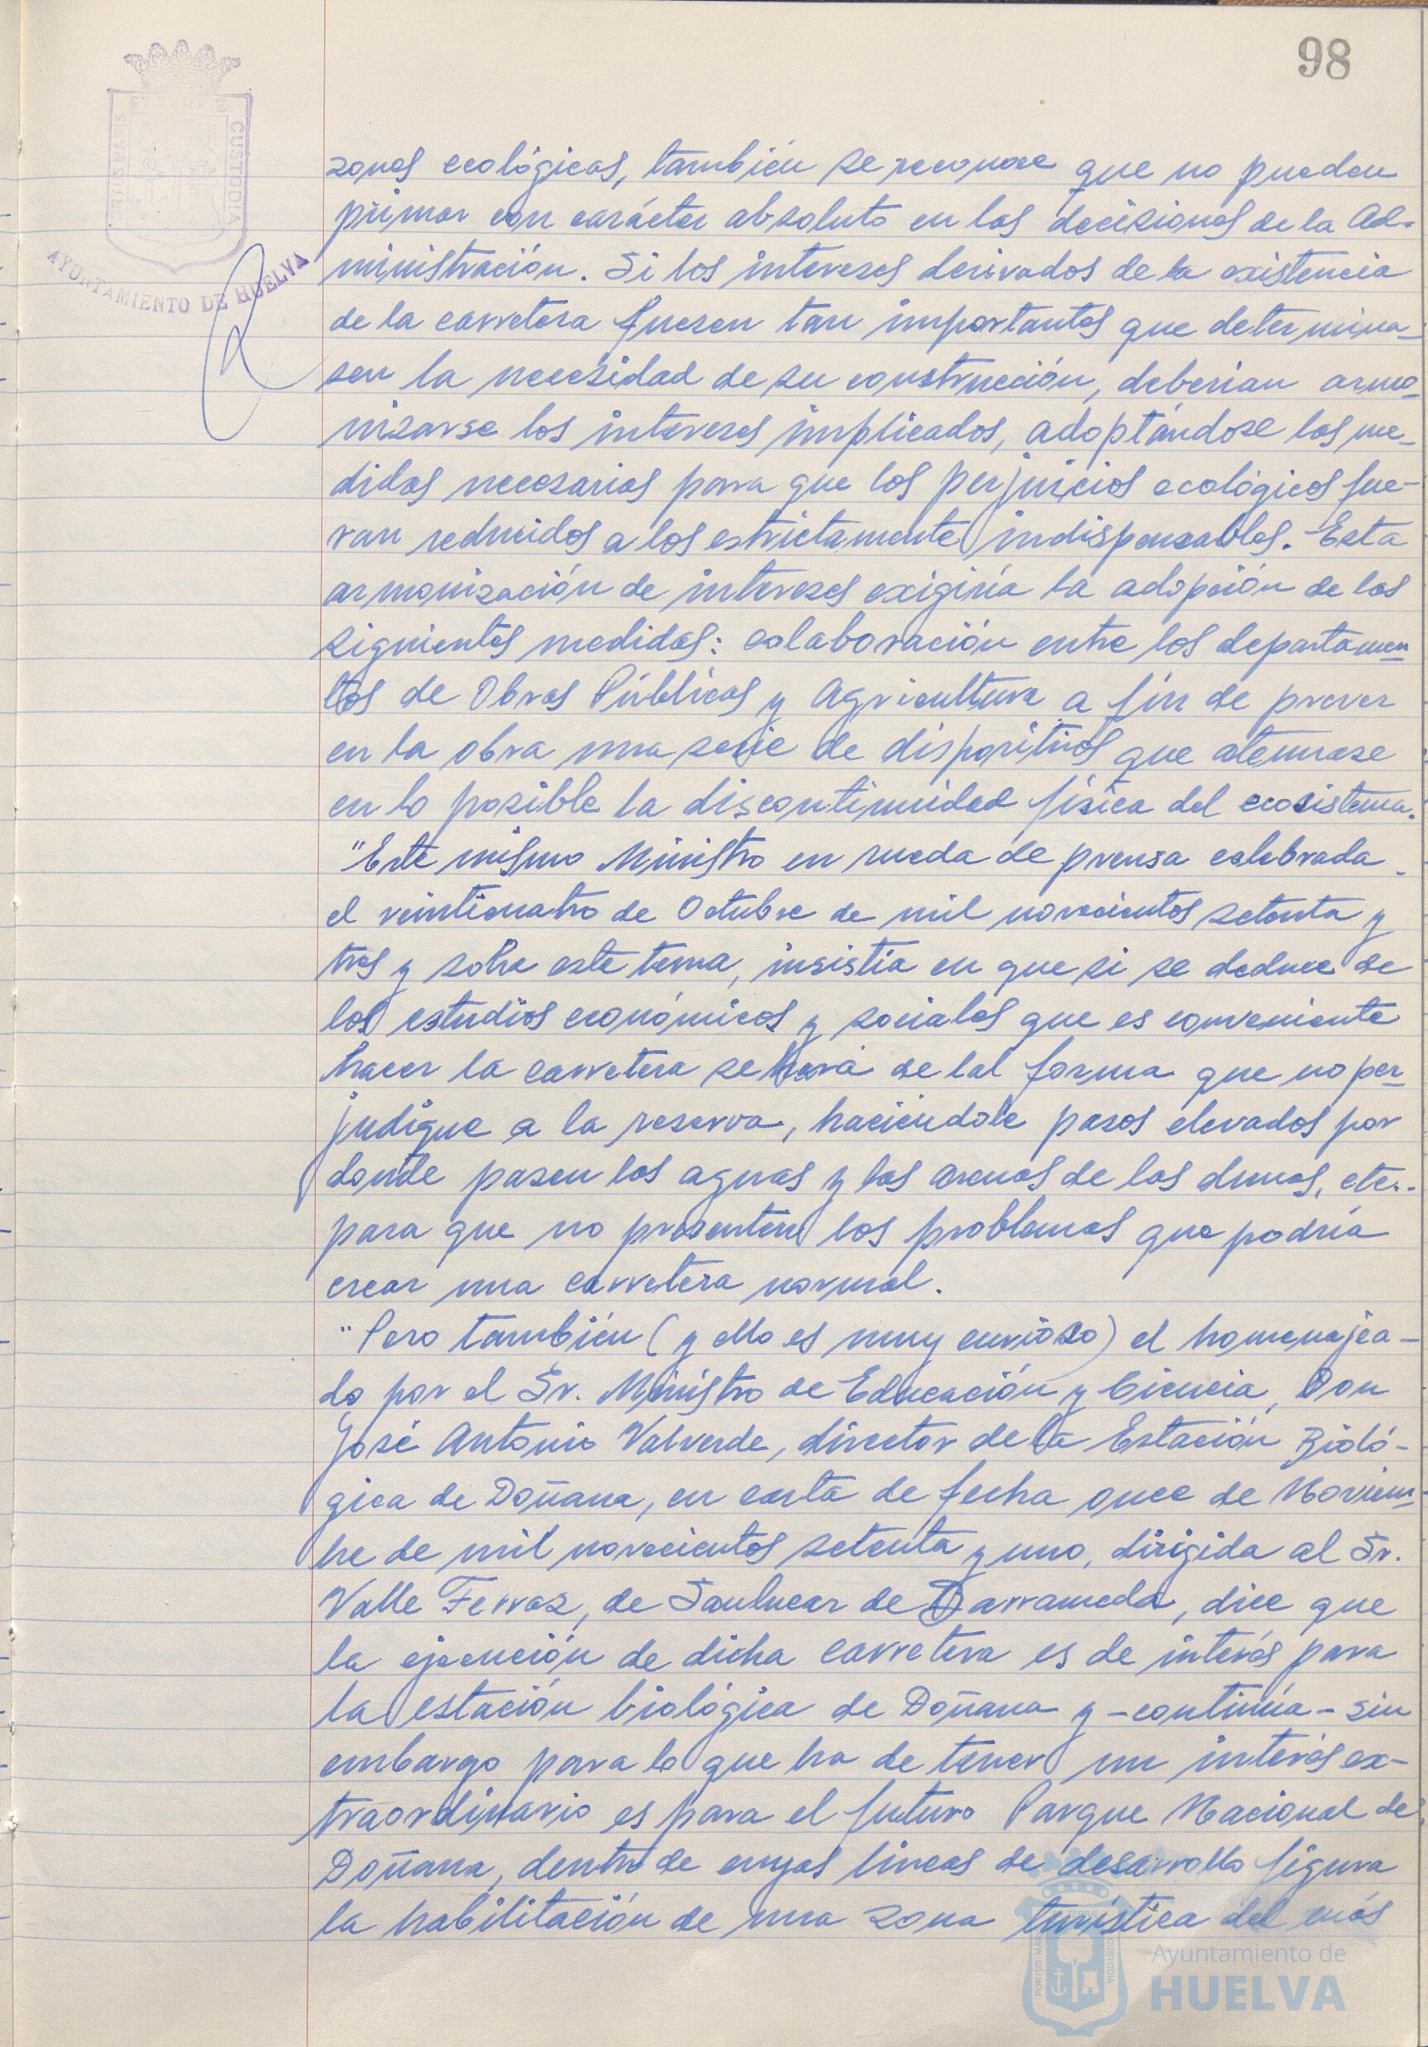 98
PORTUS MARIS ET TERRAE CUSTODIA
AYUNTAMIENTO DE HUELVA
zonas ecológicas, también se reconoce que no pueden
primar con carácter absoluto en las decisiones de la Ad-
ministración. Si los intereses derivados de la existencia
de la carretera fuesen tan importantes que determina-
sen la necesidad de su construcción, deberían armo-
nizarse los intereses implicados, adoptándose las me-
didas necesarias para que los perjuicios ecológicos fue-
ran reducidos a los estrictamente indispensables. Esta
armonización de intereses exigiría la adopción de las
siguientes medidas: colaboración entre los departamen-
tos de Obras Públicas y Agricultura a fin de prever
en la obra una serie de dispositivos que atenuase
en lo posible la discontinuidad física del ecosistema.
"Este mismo Ministro en rueda de prensa celebrada
el veinticuatro de Octubre de mil novecientos setenta y
tres y sobre este tema, insistía en que si se deduce de
los estudios económicos y sociales que es conveniente
hacer la carretera se hará de tal forma que no per-
judique a la reserva, haciéndole pasos elevados por
donde pasen las aguas y las arenas de las dunas, etc..
para que no presenten los problemas que podría
crear una carretera normal.
"Pero también (y ello es muy curioso) el homenajea-
do por el Sr. Ministro de Educación y Ciencia, Don
José Antonio Valverde, director de la Estación Bioló-
gica de Doñana, en carta de fecha once de Noviem-
bre de mil novecientos setenta y uno, dirigida al Sr.
Valle Ferraz, de Sanlucar de Barrameda, dice que
la ejecución de dicha carretera es de interés para
la estación biológica de Doñana y -continúa- sin
embargo para lo que ha de tener un interés ex-
traordinario es para el futuro Parque Nacional de
Doñana, dentro de cuyas líneas de desarrollo figura
la habilitación de una zona turística del más
Ayuntamiento de
HUELVA